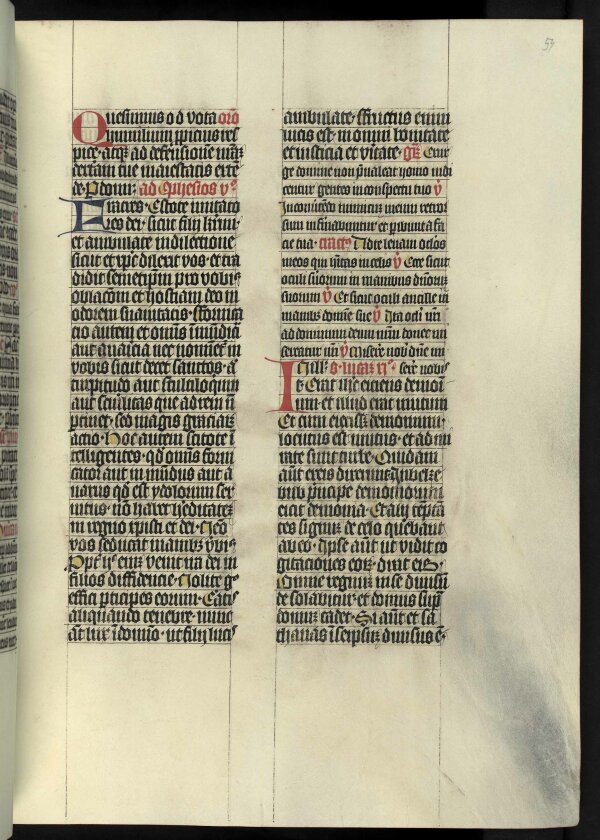 59
Quesumus o d vota oro
humilium ppicius res
pice · atq; ad defensione nrā
dexteram tue maiestatis exte
de · P domī · ad Ephesios v°
Fratres · Estote imitato
res dei · sicut filij krīmi
et ambulate in dilectione
sicut et xpc dilexit vos · et tra
didit semetipm pro vobis
oblacōem et hostiam deo in
odorem suauitatis · ffornica
cio autem et omīs īmūdicia
aut auaricia nec nomīet̄ in
vobis sicut decet sanctos · a
turpitudo aut stultiloquiū
aut scurilitas que ad rem nō
ptinet · sed magis graciar̄
actio · Hoc autem scitote ī
telligentes · qd omīs forni
cator aut in mūdus aut a
uarus qd est ydolorum ser
uitus · nō habet hʒeditatē
in regno xpisti et dei · Neō
vos seducat inanibʒ vbis
Ppt̄ h̄ enī venit ira dei in
filios diffidencie · Nolite gͦ
effici pticipes eorum · Eatis
aliquando tenebre · nunc
aūt lux ī domīo · ut filij lucis
ambulate · ffructus enim
lucis est · in omni bonitate
et iusticia et vitate · gr̄ Exur
ge domine non pualeat homo iudi
centur gentes in conspectu tuo v̄
In conutēdo inimicū meum retror
sum infirmabuntur et peribunt a fa
cie tua · tract̄ Ad te leuaui oclos
meos qui hītas in celis v̄ Ecce sicut
oculi seruorum in manibus dn̄orū
suorum v̄ Et sicut oculi ancille in
manibꝫ domine sue v̄ Ita ocli nrī
ad dominum deum nrm̄ donec mi
sereatur nrī v̄ Miserē nob̄ dn̄e mi
In ill° s · lucas xi° serē nobis
t̄ Erat ihc eiciens demoni
um · et illud erat mutum
Et cum eiecissʒ demonium ·
locutus est mutus · et admi
rate sunt turbe · Quidam
aūt ex eis dixerunt · In belze
bub principe demoniorum
eicit demonia · Et alij tepta
tes signū de celo querebant
ab eo · Ipse aūt ut vidit co
gitaciones eor̄ · dixit eis ·
Omne regnū in se diuisū
de solabitur · et domus sup̄
domum cadet · Si aūt et sa
thanas ī seipsū diuisus ē ·